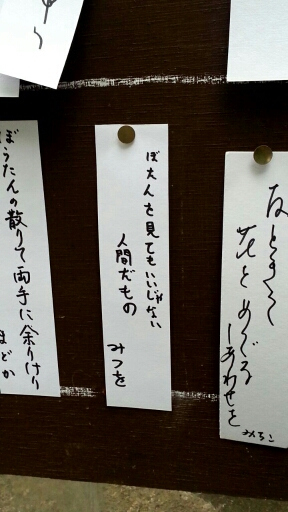 花をめでる
しあわせを
みちこ
ぼたんを見てもいいじゃない
人間だもの
みつを
ぼうたんの散りて両手に余りけり
まどか